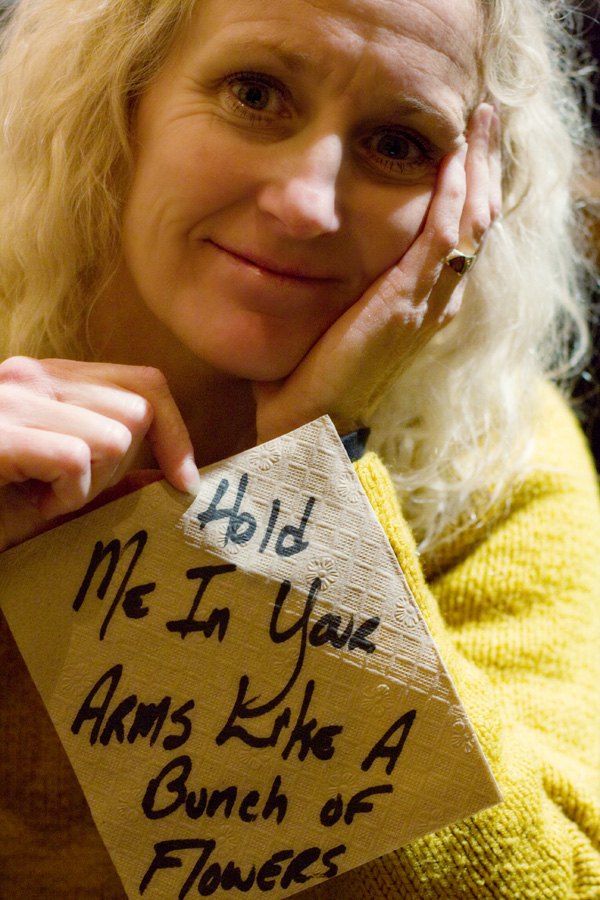 Hold
Me In Your
ARMS Like A
Bunch of
Flowers